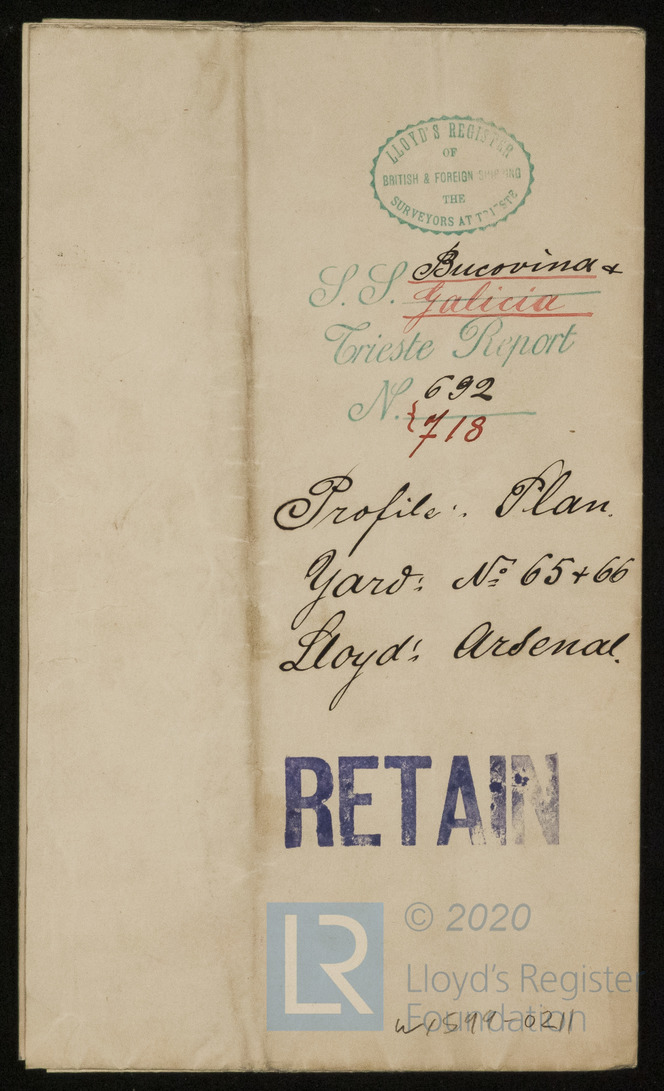 LLOYD'S REGISTER
OF
BRITISH & FOREIGN SHIPPING
THE
SURVEYORS AT TRIESTE
S.S. Bucovina +
Galicia
Trieste Report
N. 692
718
Profile: Plan.
Yard: No 65 + 66
Lloyd's Arsenal.
RETAIN
LR
© 2020
Lloyd's Register
Foundation
-0211